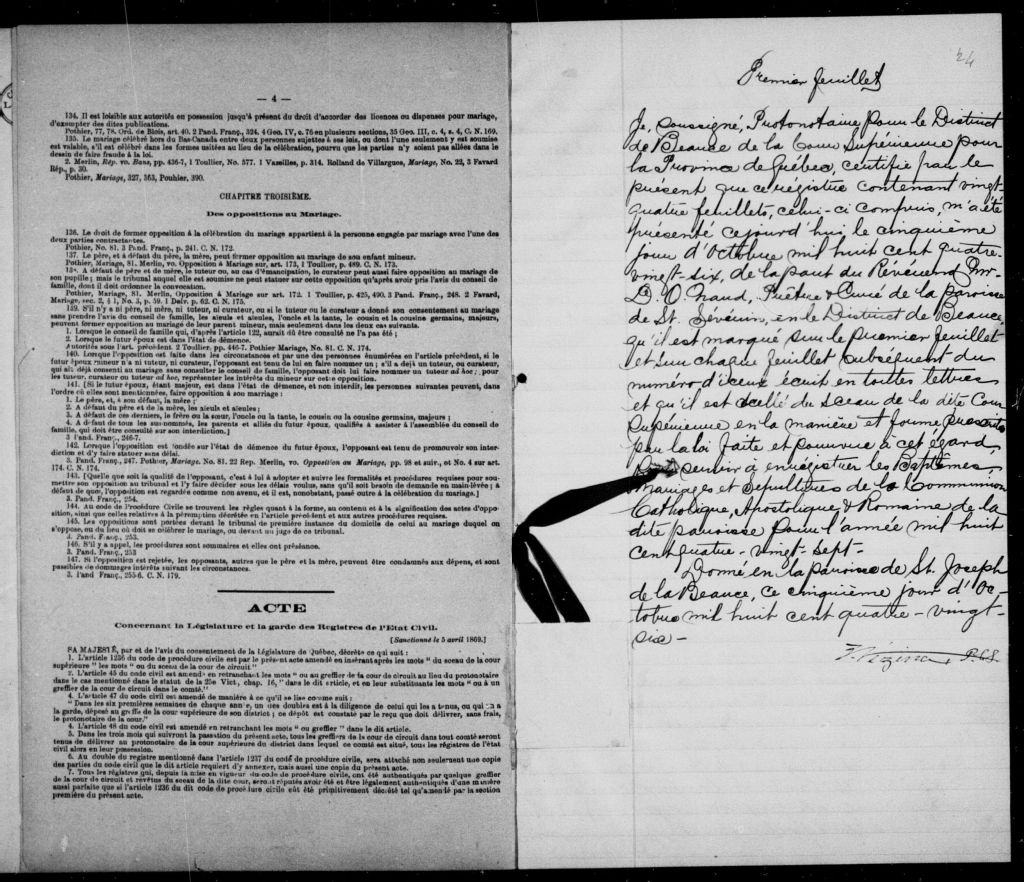 — 4 —
134. Il est loisible aux autorités en possession jusqu'à présent du droit d'accorder des licences ou dispenses pour mariage,
d'exempter des dites publications.
Pothier, 77, 78. Ord. de Blois, art. 40. 2 Pand. Franç., 324. 4 Geo. IV, c. 76 en plusieurs sections, 35 Geo. III, c. 4, s. 4, C. N. 169.
135. Le mariage célébré hors du Bas-Canada entre deux personnes sujettes à ses lois, ou dont l'une seulement y est soumise
est valable, s'il est célébré dans les formes usitées au lieu de la célébration, pourvu que les parties n'y soient pas allées dans le
dessein de faire fraude à la loi.
2. Merlin, Rép. vo. Bans, pp. 436-7, 1 Toullier, No. 577. 1 Vazeilles, p. 314. Rolland de Villargues, Mariage, No. 22, 3 Favard
Rép., p. 30.
Pothier, Mariage, 327, 363, Pouhier, 390.
CHAPITRE TROISIÈME.
Des oppositions au Mariage.
136. Le droit de former opposition à la célébration du mariage appartient à la personne engagée par mariage avec l'une des
deux parties contractantes.
Pothier, No. 81. 3 Pand. Franç., p. 241. C. N. 172.
137. Le père, et à défaut du père, la mère, peut former opposition au mariage de son enfant mineur.
Pothier, Mariage, 81. Merlin, vo. Opposition à Mariage, sur art. 173, 1 Toullier, p. 489. C. N. 173.
138. A défaut de père et de mère, le tuteur ou, au cas d'émancipation, le curateur peut aussi faire opposition au mariage de
son pupille; mais le tribunal auquel elle est soumise ne peut statuer sur cette opposition qu'après avoir pris l'avis du conseil de
famille, dont il doit ordonner la convocation.
Pothier, Mariage, 81. Merlin, Opposition à Mariage sur art. 172. 1 Touiller, p. 425, 490. 3 Pand. Franç., 248. 2 Favard,
Mariage, sec. 2, § 1, No. 3, p. 59. 1 Delv. p. 62. C. N. 175.
139. S'il n'y a ni père, ni mère, ni tuteur, ni curateur, ou si le tuteur ou le curateur a donné son consentement au mariage
sans prendre l'avis du conseil de famille, les aïeuls et aïeules, l'oncle et la tante, le cousin et la cousine germains, majeurs,
peuvent former opposition au mariage de leur parent mineur, mais seulement dans les deux cas suivants.
1. Lorsque le conseil de famille qui, d'après l'article 122, aurait dû être consulté ne l'a pas été;
2. Lorsque le futur époux est dans l'état de démence.
Autorités sous l'art. précédent. 2 Toullier, pp. 446-7. Pothier Mariage, No. 81. C. N. 174.
140. Lorsque l'opposition est faite dans les circonstances et par une des personnes énumérées en l'article précédent, si le
futur époux mineur n'a ni tuteur, ni curateur, l'opposant est tenu de lui en faire nommer un; s'il a déjà un tuteur, ou curateur,
qui ait déjà consenti au mariage sans consulter le conseil de famille, l'opposant doit lui faire nommer un tuteur ad hoc; pour
les tuteur, curateur ou tuteur ad hoc, représenter les intérêts du mineur sur cette opposition.
141. [Si le futur époux, étant majeur, est dans l'état de démence, et non interdit, les personnes suivantes peuvent, dans
l'ordre où elles sont mentionnées, faire opposition à son mariage :
1. Le père, et, à son défaut, la mère;
2. A défaut du père et de la mère, les aïeuls et aïeules;
3. A défaut de ces derniers, le frère ou la sœur, l'oncle ou la tante, le cousin ou la cousine germains, majeurs;
4. A défaut de tous les sus-nommés, les parents et alliés du futur époux, qualifiés à assister à l'assemblée du conseil de
famille, qui doit être consulté sur son interdiction.]
3 Pand. Franç., 246-7.
142. Lorsque l'opposition est fondée sur l'état de démence du futur époux, l'opposant est tenu de promouvoir son inter-
diction et d'y faire statuer sans délai.
3. Pand. Franç., 247. Pothier, Mariage, No. 81. 22 Rep. Merlin, vo. Opposition au Mariage, pp. 98 et suir., et No. 4 sur art.
174. C. N. 174.
143. [Quelle que soit la qualité de l'opposant, c'est à lui à adopter et suivre les formalités et procédures requises pour sou-
mettre son opposition au tribunal et l'y faire décider sous les délais voulus, sans qu'il soit besoin de demande en main-levée; à
défaut de quoi, l'opposition est regardée comme non avenu, et il est, nonobstant, passé outre à la célébration du mariage.]
3. Pand. Franç., 254.
144. Au code de Procédure Civile se trouvent les règles quant à la forme, au contenu et à la signification des actes d'oppo-
sition, ainsi que celles relatives à la péremption décrétée en l'article précédent et aux autres procédures requises.
145. Les oppositions sont portées devant le tribunal de première instance du domicile de celui au mariage duquel on
s'oppose, ou du lieu où doit se célébrer le mariage, ou devant un juge de ce tribunal.
3. Pand. Franç., 253.
146. S'il y a appel, les procédures sont sommaires et elles ont préséance.
3. Pand. Franç., 253
147. Si l'opposition est rejetée, les opposants, autres que le père et la mère, peuvent être condamnés aux dépens, et sont
passibles de dommages intérêts suivant les circonstances.
3. Pand Franç., 255-6. C. N. 179.
ACTE
Concernant la Législature et la garde des Registres de l'Etat Civil.
[Sanctionné le 5 avril 1869.]
SA MAJESTÉ, par et de l'avis du consentement de la Législature de Québec, décrète ce qui suit :
1. L'article 1236 du code de procédure civile est par le présent acte amendé en insérant après les mots " du sceau de la cour
supérieure " les mots " ou du sceau de la cour de circuit."
2. L'article 45 du code civil est amendé en retranchant les mots " ou au greffier de la cour de circuit au lieu du protonotaire
dans le cas mentionné dans le statut de la 25e Vict., chap. 16, " dans le dit article, et en leur substituants les mots " ou à un
greffier de la cour de circuit dans le comté."
4. L'article 47 du code civil est amendé de manière à ce qu'il se lise comme suit :
" Dans les six premières semaines de chaque année, un des doubles est à la diligence de celui qui les a tenus, ou qui en a
la garde, déposé au greffe de la cour supérieure de son district; ce dépôt est constaté par le reçu que doit délivrer, sans frais,
le protonotaire de la cour."
4. L'article 48 du code civil est amendé en retranchant les mots " ou greffier " dans le dit article.
5. Dans les trois mois qui suivront la passation du présent acte, tous les greffiers de la cour de circuit dans tout comté seront
tenus de délivrer au protonotaire de la cour supérieure du district dans lequel ce comté est situé, tous les régistres de l'état
civil alors en leur possession.
6. Au double du registre mentionné dans l'article 1237 du code de procédure civile, sera attaché non seulement une copie
des parties du code civil que le dit article requiert d'y annexer, mais aussi une copie du présent acte.
7. Tous les régistres qui, depuis la mise en vigueur du code de procédure civile, ont été authentiqués par quelque greffier
de la cour de circuit et revêtus du sceau de la dite cour, seront réputés avoir été et être légalement authentiqués d'une manière
aussi parfaite que si l'article 1236 du dit code de procédure civile eût été primitivement décrété tel qu'amendé par la section
première du présent acte.
24
Premier feuillet
Je, soussigné, Protonotaire pour le District
de Beauce de la Cour Supérieure pour
la Province de Québec, certifie par le
présent que ce régistre contenant vingt-
quatre feuillets, celui-ci compris, m'a été
présenté cejourd'hui le cinquième
jour d'Octobre mil huit cent quatre-
vingt-six, de la part du Révérend Mr
D. O. Naud, Prêtre & Curé de la paroisse
de St. Sévérin, en le District de Beauce,
qu'il est marqué sur le premier feuillet
et sur chaque feuillet subséquent du
numéro d'iceux écrit en toutes lettres
et qu'il est scellé du sceau de la dite Cour
Supérieure en la manière et forme prescrite
par la loi faite et pourvue à cet égard,
Pour servir à enrégistrer les Baptêmes,
Mariages et Sépultures de la Communion
Catholique, Apostolique & Romaine de la
dite paroisse pour l'année mil huit
cent quatre-vingt-sept-
Donné en la paroisse de St. Joseph
de la Beauce, ce cinquième jour d'Oc-
tobre mil huit cent quatre-vingt-
six-
Vézina P.C.S.